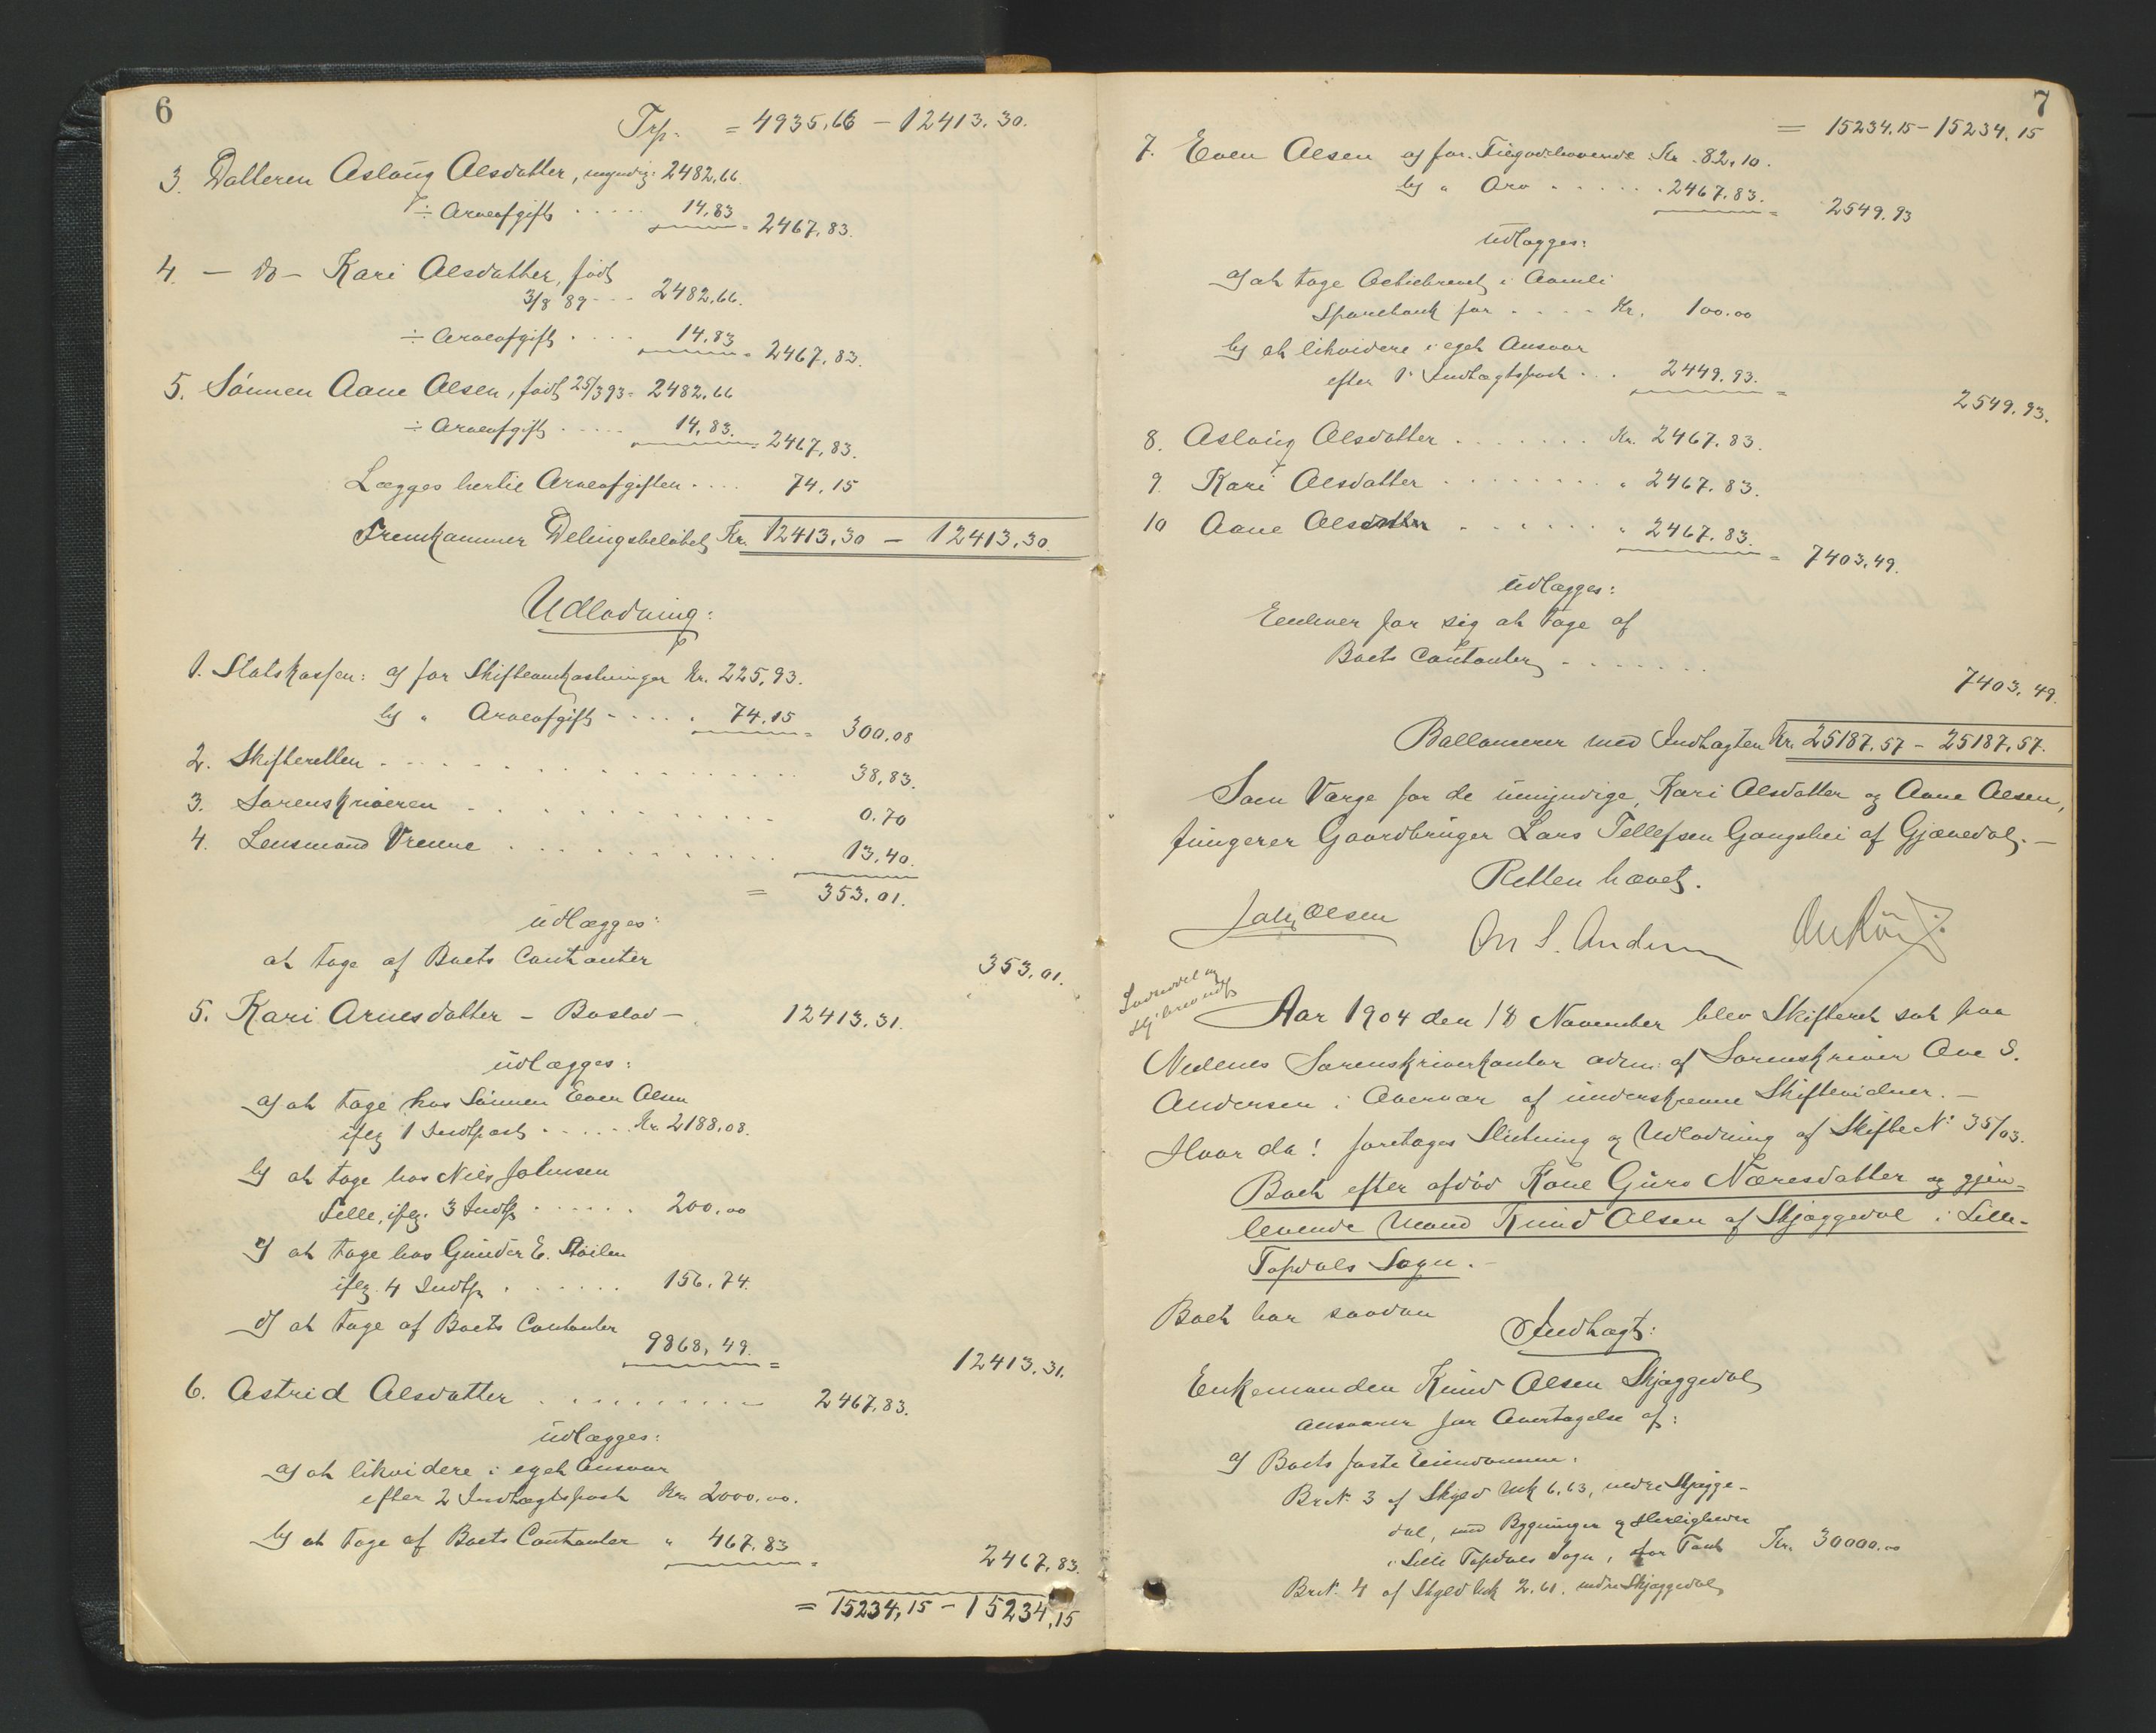 6
Trp. = 4935,66 – 12413.30.
3. Datteren Aslaug Olsdatter, myndig: 2482,66
÷ Arveafgift ..... 14,83 = 2467,83.
4. – do – Kari Olsdatter, født
3/8 89 --- 2482,66.
÷ Arveafgift ..... 14,83 = 2467,83.
5. Sönnen Aane Olsen, født 25/3 93 = 2482,66
÷ Arveafgift ..... 14,83. = 2467,83.
Lægges hertil Arveafgiften .... 74,15
Fremkommer Delingsbeløbet Kr. 12413,30 – 12413,30.
Udlodning:
1. Statskassen: a) for Skifteomkostninger Kr. 225,93.
b) " Arveafgift ..... 74,15 = 300,08
2. Skifteretten ........ 38,83.
3. Sorenskriveren ........ 0.70
4. Lensmand Vrenne ........ 13,40.
= 353,01.
udlægges:
at tage af Boets Contanter 353,01.
5. Kari Arnesdatter – Boslod – 12413,31.
udlægges:
a) at tage hos Sönnen Even Olsen
iflg 1 Indtpost ..... Kr. 2188,08.
b) at tage hos Niels Johnsen
Lille, iflg. 3 Indtp ...... 200,00
c) at tage hos Gunder E. Støilen
iflg. 4 Indtp. ...... 156.74.
d) at tage af Boets Contanter
9868,49. =
12413.31.
6. Astrid Olsdatter .......... 2467,83.
udlægges:
a) at likvidere i eget Ansvar
efter 2 Indtægtspost Kr. 2000,00.
b) at tage af Boets Contanter " 467.83 =
2467,83.
= 15234,15 – 15234,15
7
= 15234,15 – 15234,15
7. Even Olsen a) for Tilgodehavende Kr. 82,10.
b) " Arv ...... 2467.83. = 2549.93
udlægges:
a) at tage Actiebrevet i Aamli
Sparebank for .... Kr. 100.00
b) at likvidere i eget Ansvar
efter 1' Indtægtspost ... 2449.93. =
2549.93.
8. Aslaug Olsdatter ....... Kr. 2467.83.
9. Kari Olsdatter ........ " 2467.83.
10 Aane Olsdatter ...... " 2467.83. = 7403,49.
udlægges:
Enhver for sig at tage af
Boets Contanter .......
7403.49.
Ballancerer med Indtægten Kr. 25187,57 – 25187,57.
Som Værge for de umyndige, Kari Olsdatter og Aane Olsen,
fungerer Gaardbruger Lars Tellefsen Gangshei af Gjøvedal. –
Retten hævet.
Olsen On S. Andersen
Aar 1904 den 18 November blev Skifteret sat paa
Nedenes Sorenskriverkontor adm: af Sorenskriver One S.
Andersen i Overvær af underskrevne Skiftevidner. –
Hvor da! foretages Slutning og Udlodning af Skifte No 35/03.
Boet efter afdød Kone Guro Næresdatter og gjen-
levende Mand Knud Olsen af Skjæggedal i Lille-
Topdals Sogn. –
Boet har saadan
Indtægt:
Enkemanden Knud Olsen Skjæggedal
ansvarer for Overtagelse af:
a) Boets faste Eiendomme:
Br.No. 3 af Skyld Mk 6,63, nedre Skjægge-
dal, med Bygninger og Herligheder
i Lille Topdals Sogn, for Taxt Kr. 30000.00
Br.No. 4 af Skyld Mk 2.61. nedre Skjæggedal